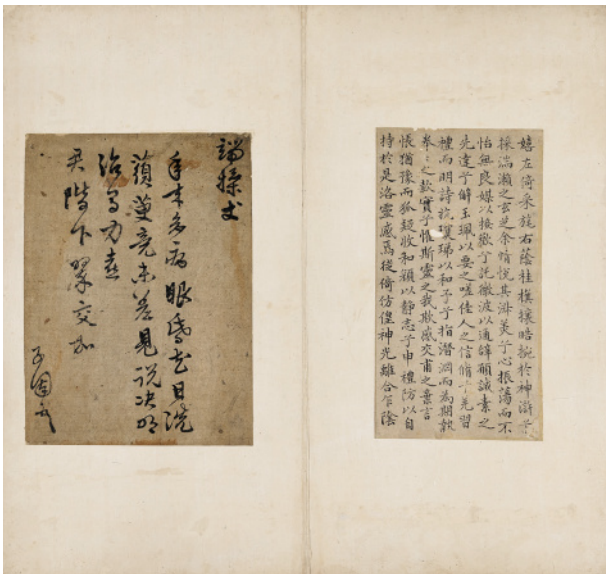 嬉左倚采旄右蔭桂旗攘皓捥於神滸兮
採湍瀨之玄芝余情悅其淑美兮心振蕩而不
怡無良媒以接歡兮託微波以通辭願誠素之
先達兮解玉珮以要之嗟佳人之信脩兮羌習
禮而明詩抗瓊珶以和予兮指潛淵而為期執
拳〻之款實兮惟斯靈之我欺感交甫之棄言
悵猶豫而狐疑收和顏以静志兮申禮防以自
持於是洛靈感焉徙倚仿偟神光離合乍陰
丈
年來多病眼昏花日洗
竟未差見說决明
君階下翠交加
子固